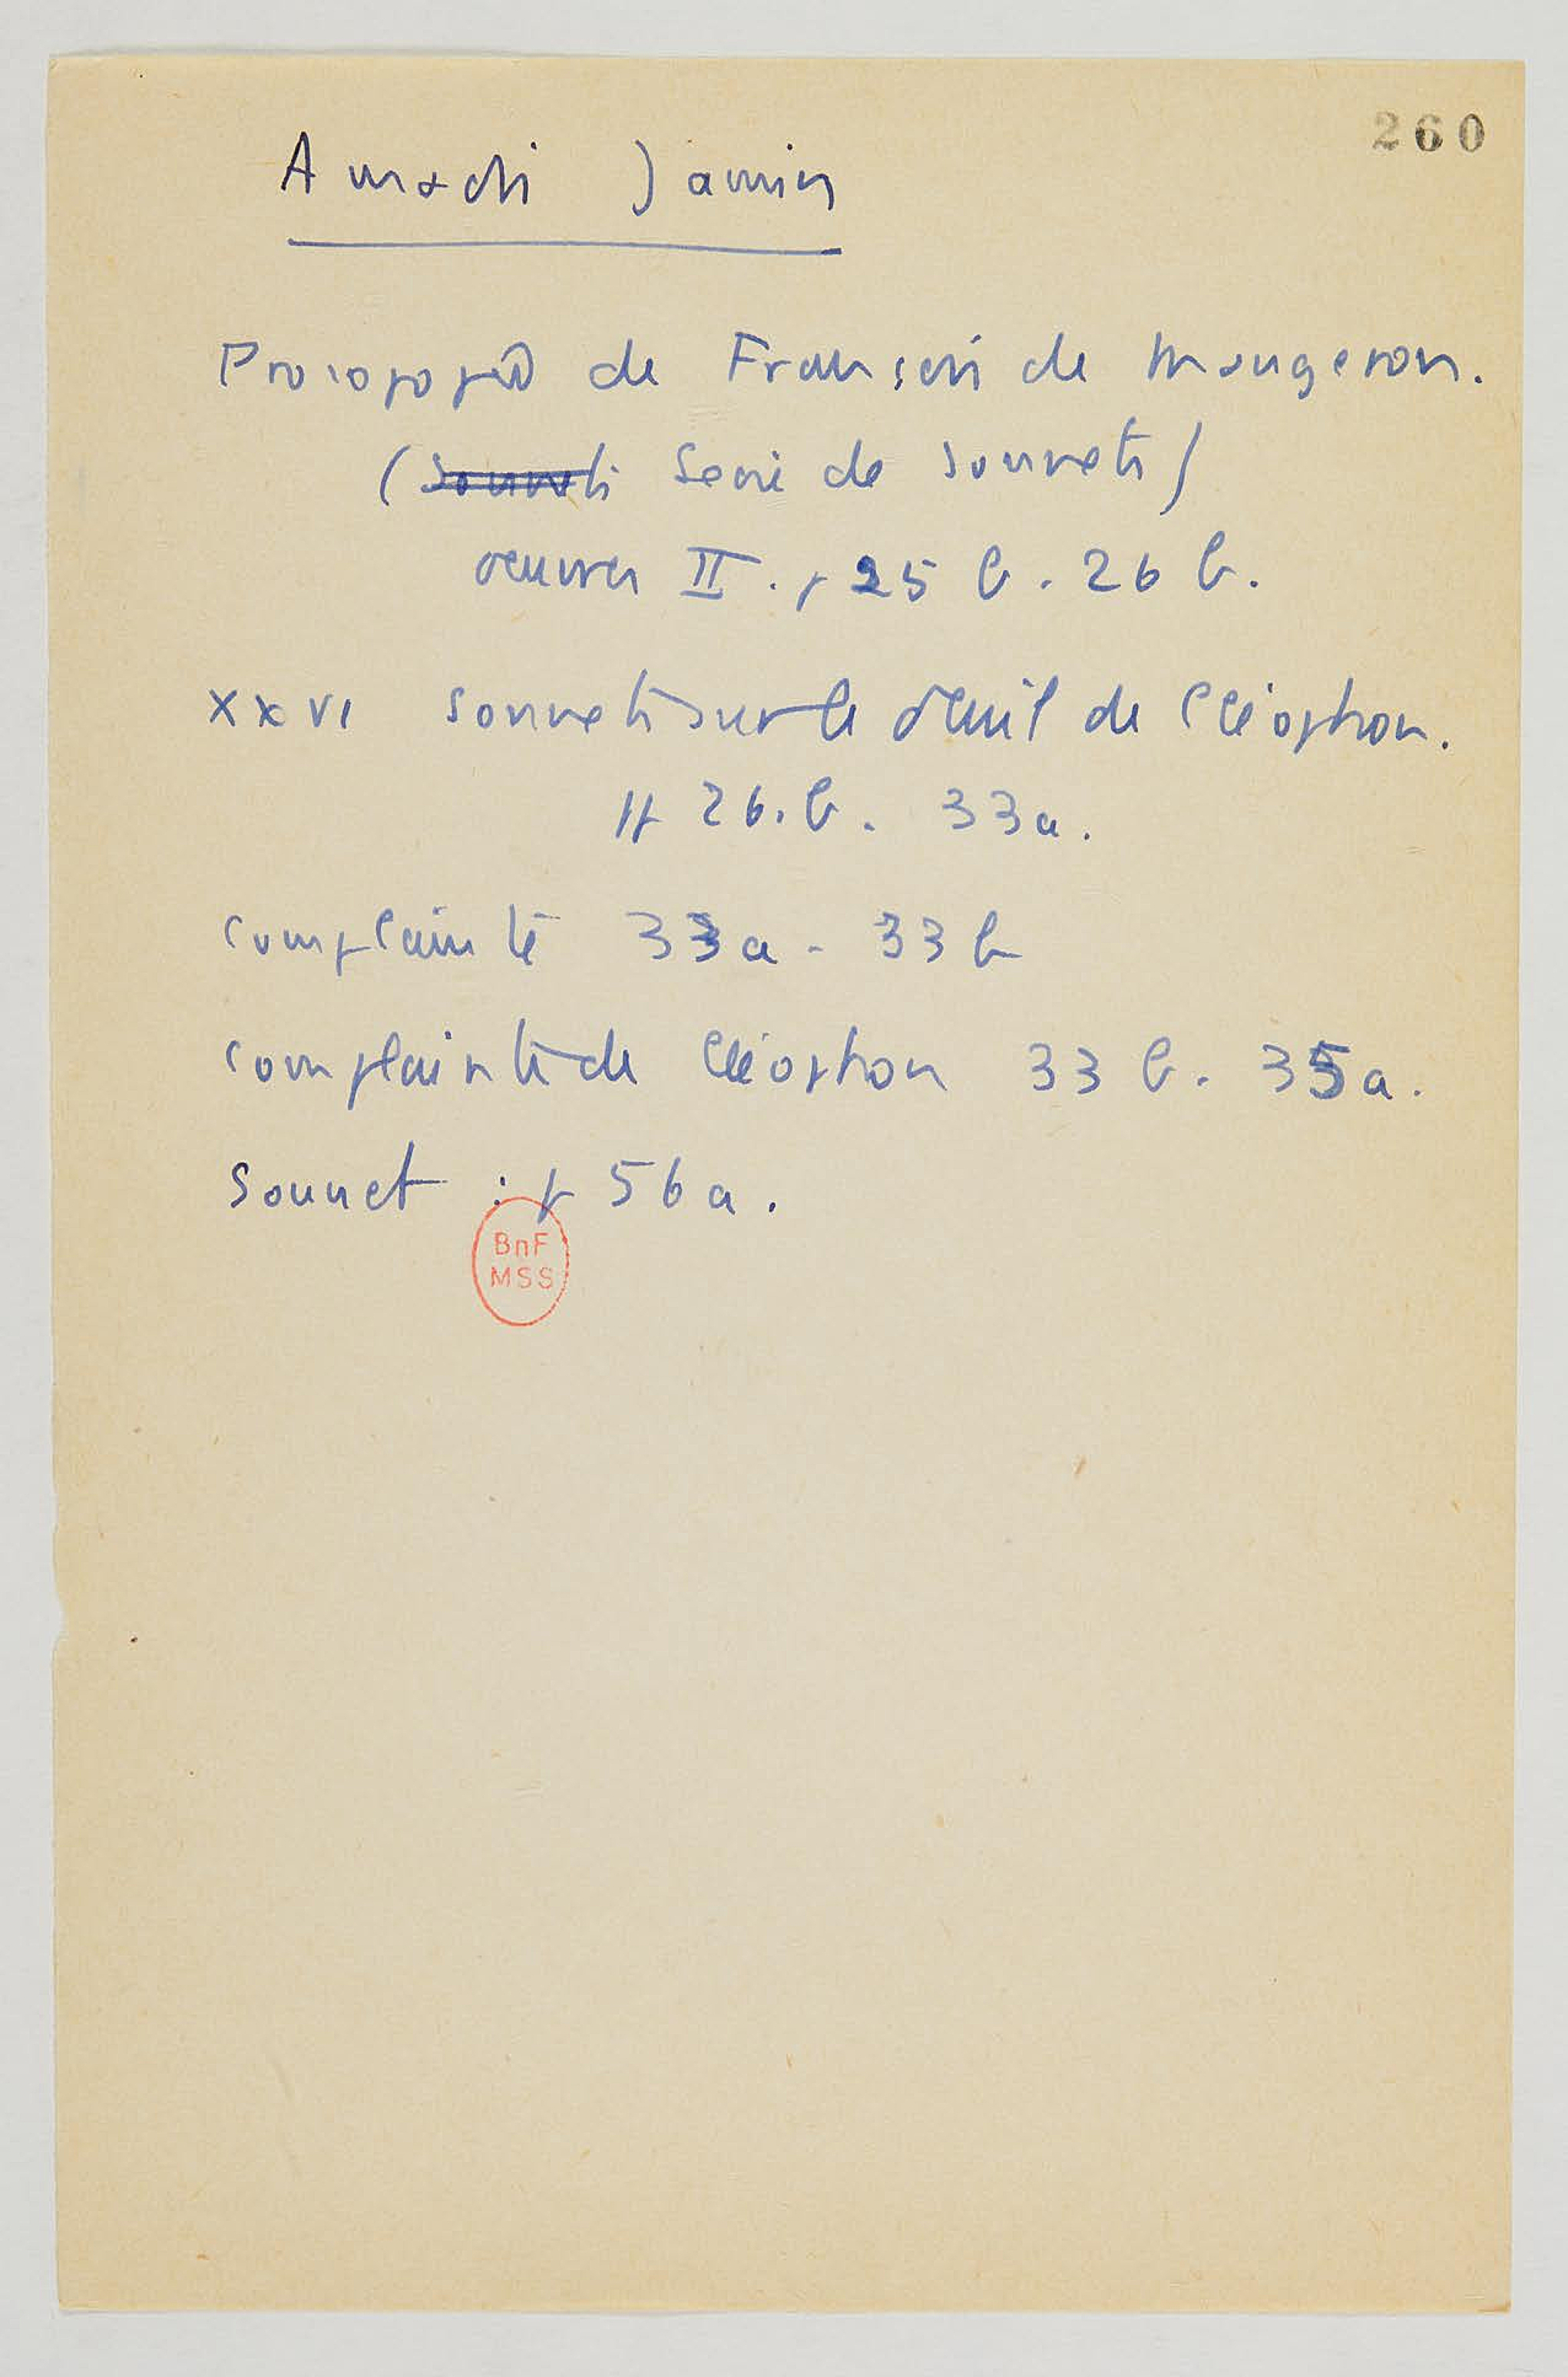 260
Amadis Jamin
Prosopopée de François de Maugeron.
(Sonnets Serie de sonnets)
oeuvres II. p 25 b. 26 b.
XXVI sonnets sur le deuil de Cléophon.
pp 26. b. 33a.
complainte 33a - 33 b
complainte de Cléophon 33 b. 35a.
Sonnet : p 56a.
BnF
MSS